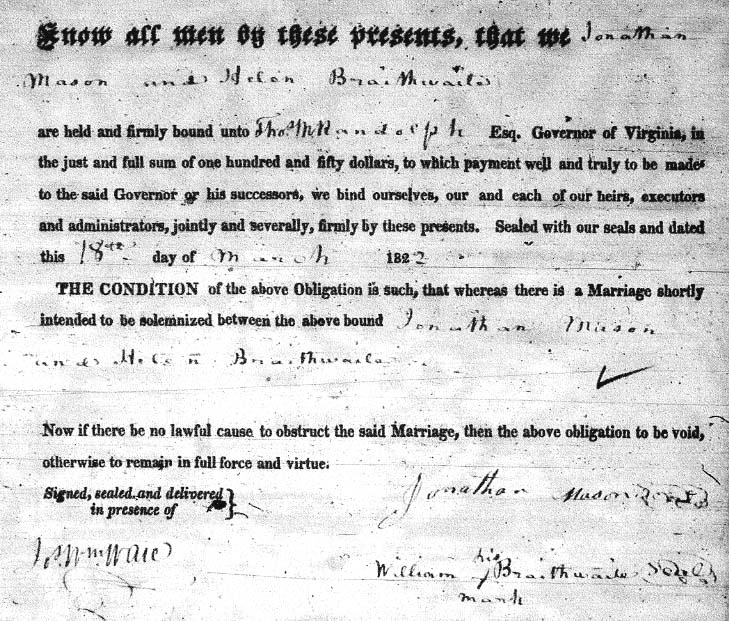 Know all men by these presents, that we Jonathan
Mason and Helen Braithwaite
are held and firmly bound unto Thos M Randolph Esq. Governor of Virginia, in
the just and full sum of one hundred and fifty dollars, to which payment well and truly to be made
to the said Governor or his successors, we bind ourselves, our and each of our heirs, executors
and administrators, jointly and severally, firmly by these presents. Sealed with our seals and dated
this 18th day of March 1822
THE CONDITION of the above Obligation is such, that whereas there is a Marriage shortly
intended to be solemnized between the above bound Jonathan Mason
and Helen Braithwaite
Now if there be no lawful cause to obstruct the said Marriage, then the above obligation to be void,
otherwise to remain in full force and virtue.
Signed, sealed and delivered
in presence of
Jonathan Mason
his
William Braithwaite
mark